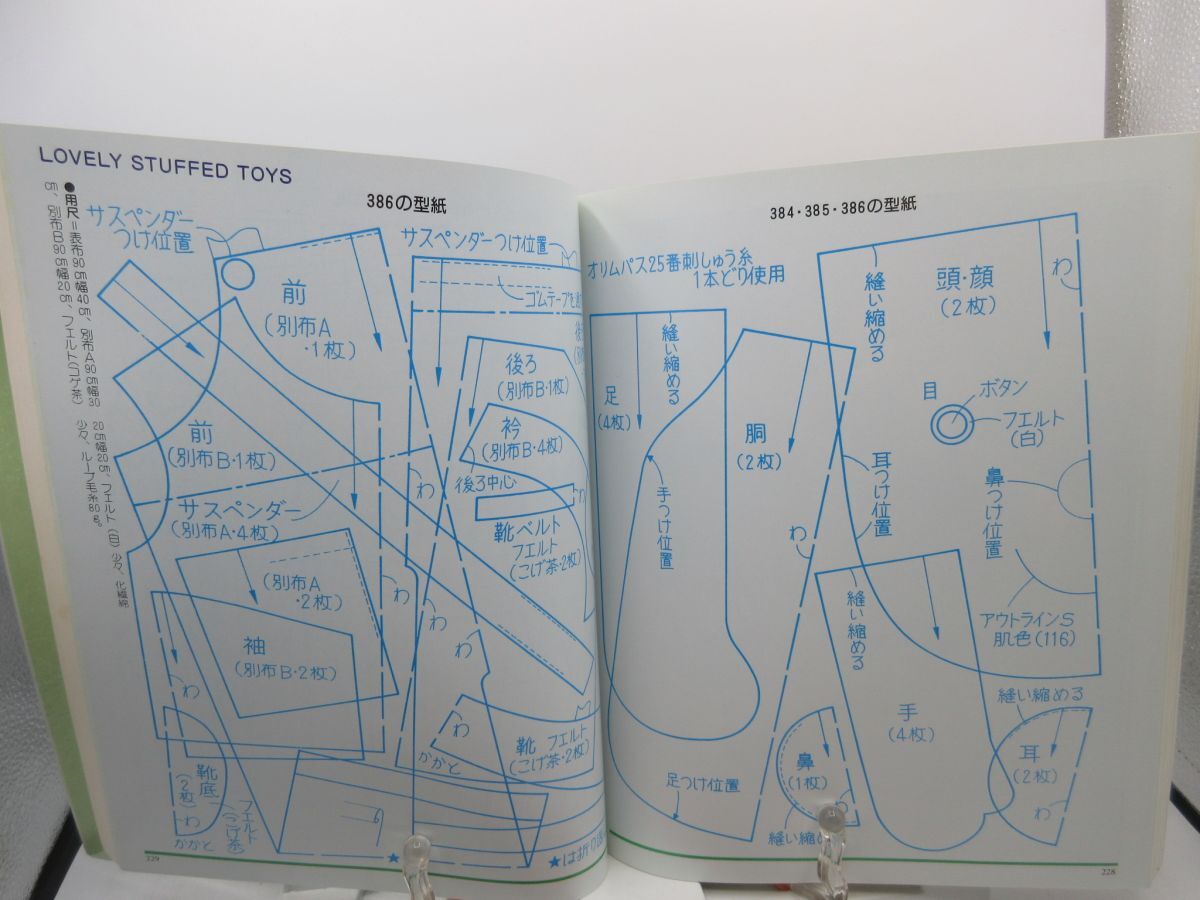 LOVELY STUFFED TOYS
●用尺=表布90cm幅40cm、別布A90cm幅30
cm、別布B90cm幅20cm、フェルト(コゲ茶)
20cm幅20cm、フェルト(白)少々、化繊綿
少々、ループ毛糸80g。
386の型紙
サスペンダー
つけ位置
前
(別布A
・1枚)
前
(別布B・1枚)
サスペンダー
(別布A・4枚)
(別布A
・2枚)
袖
(別布B・2枚)
わ
靴底
(2枚)
フェルト
(こげ茶)
わ
かかと
サスペンダーつけ位置
ゴムテープを
後ろ
(別布B・1枚)
衿
(別布B・4枚)
後ろ中心
わ
わ
靴ベルト
フェルト
(こげ茶・2枚)
わ
わ
わ
わ
靴 フェルト
(こげ茶・2枚)
かかと
★
★は折り
229
384・385・386の型紙
オリムパス25番刺しゅう糸
1本どり使用
足
(4枚)
縫い縮める
手つけ位置
胴
(2枚)
わ
足つけ位置
縫い縮める
頭・顔
(2枚)
わ
目
ボタン
フエルト
(白)
耳つけ位置
鼻つけ位置
アウトラインS
肌色(116)
縫い縮める
手
(4枚)
縫い縮める
耳
(2枚)
わ
鼻
(1枚)
わ
縫い縮め
228